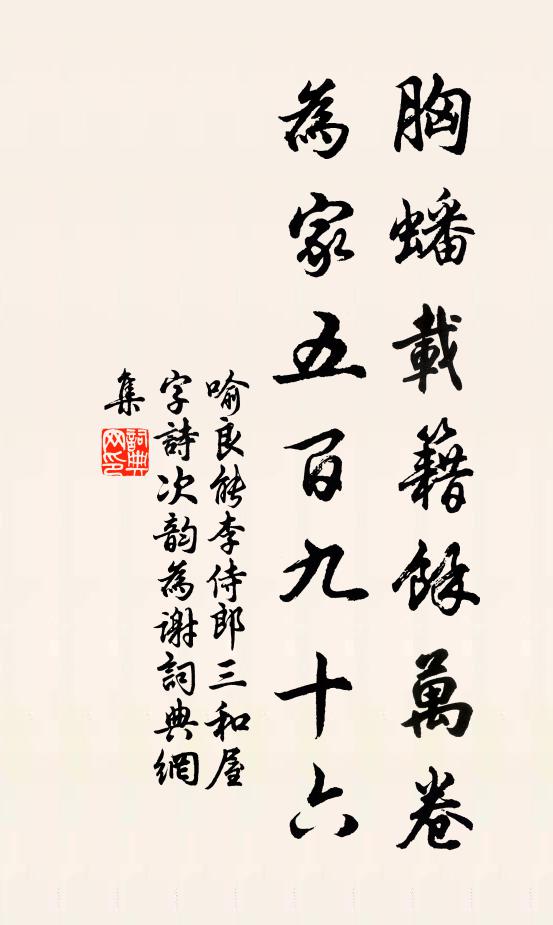 胸蟠載籍餘萬卷
為家五百九十六
喻良能李侍郎三和屋
字詩次韵為谢詞典網
集
詞典
网印